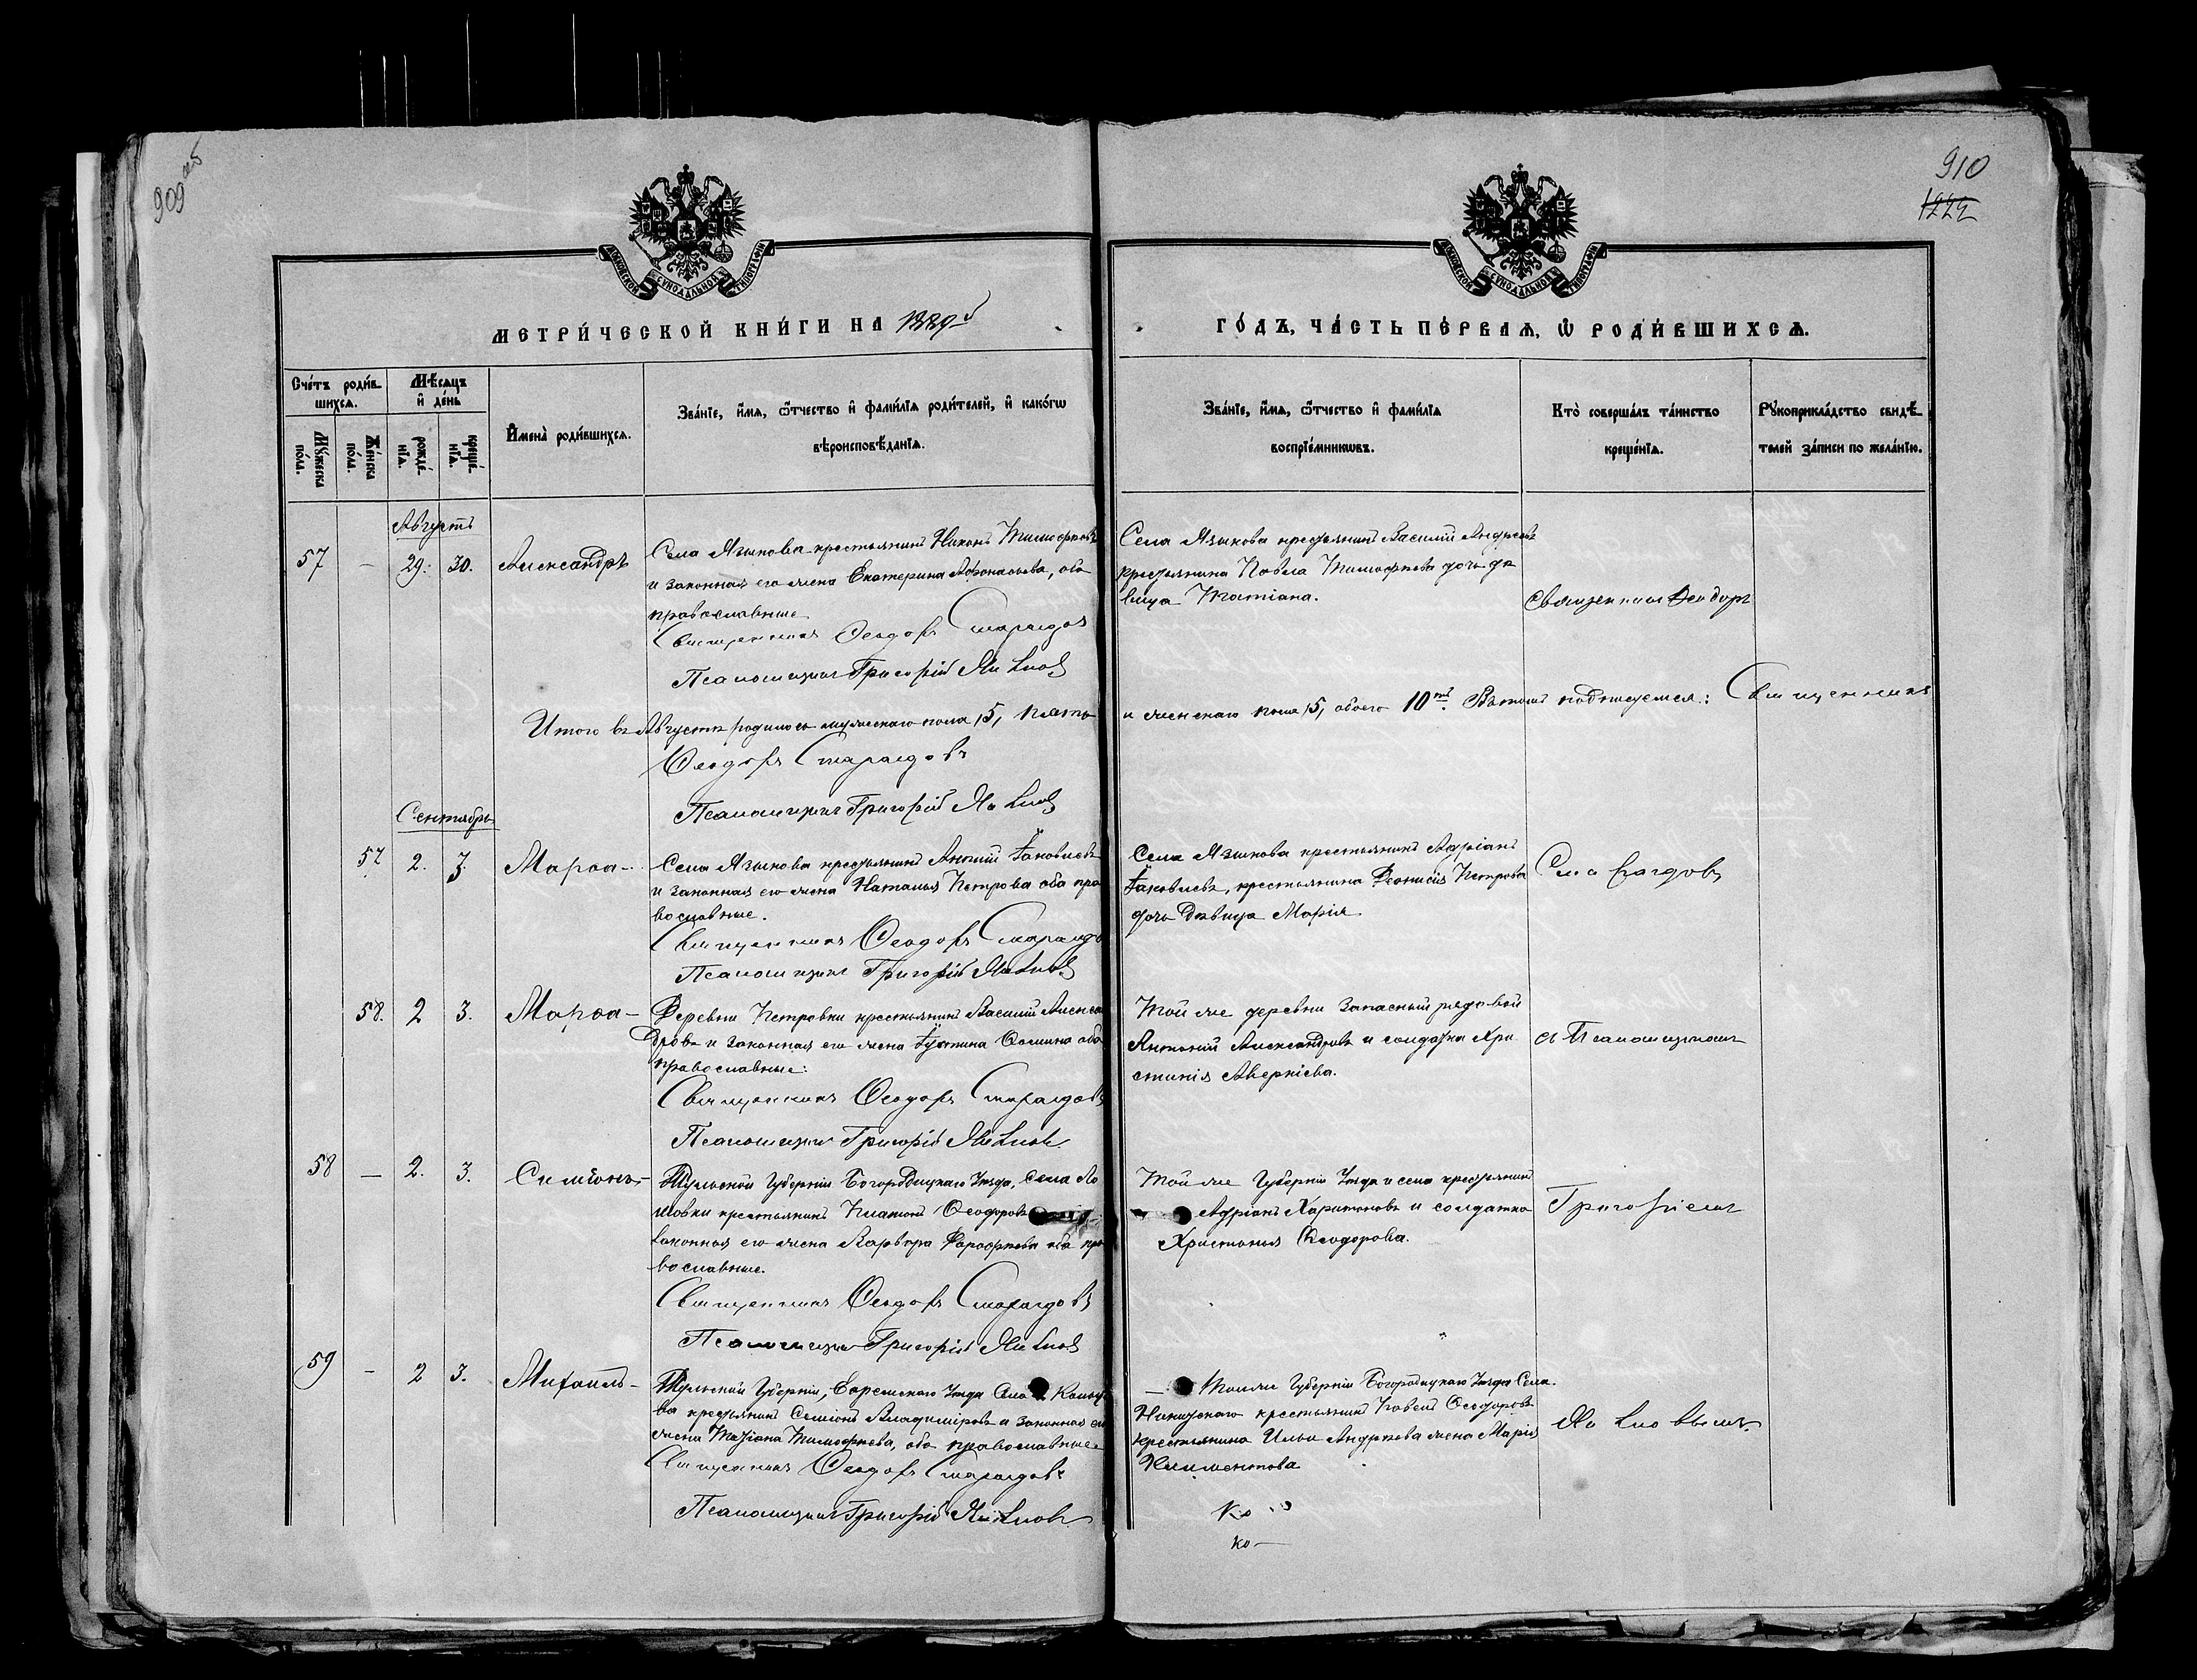 909 об
910
1222
МОСКОВСКОЙ СѴНОДАЛЬНОЙ ТИПОГРАФІИ
МОСКОВСКОЙ СѴНОДАЛЬНОЙ ТИПОГРАФІИ
МЕТРИ́ЧЕСКОЙ КНИ́ГИ НА 1889й
ГО́ДЪ, ЧА́СТЬ ПЕ́РВАЯ, Ѡ РОДИ́ВШИХСЯ.
Сче́тъ роди́в
шихся.
Мѣ́сяцъ
и де́нь
Му́жеска
по́ла.
Же́нска
по́ла.
рожде́
нїя.
креще́
нїя.
Имена̀ роди́вшихся.
Зва́нїе, и́мя, ѻ́тчество и фами́лїя роди́телей, и како́гѡ
вѣроисповѣ́данїя.
Зва́нїе, и́мя, ѻ́тчество и фами́лїя
воспрїе́мникѡвъ.
Кто̀ соверша́лъ та́инство
креще́нїя.
Рукоприкла́дство свидѣ́
телей за́писи по жела́нїю.
Августъ
57 – 29. 30. Александръ
Села Языкова крестьянинъ Никонъ Тимофѣевъ
и законная его жена Екатерина Афонасьева, оба
православные
Священникъ Ѳеодоръ Смарагдовъ
Псаломщикъ Григорій
Села Языкова крестьянинъ Василій Андреевъ
крестьянина Павла Тимофѣева дочь дѣ
вица Татіана.
Священникъ Ѳеодоръ
Итого въ Августѣ родилось мужескаго пола 5, пять
и женскаго пола 5, обоего 10ть. Въ томъ подписуемся: Священникъ
Ѳеодоръ Смарагдовъ
Псаломщикъ Григорій
Сентябрь
57 2. 3. Марѳа –
Села Языкова крестьянинъ Іаковлевъ
и законная его жена Наталья Петрова оба пра
вославные.
Священникъ Ѳеодоръ Смарагдо
Псаломщикъ Григорій
Села Языкова крестьянинъ Адріанъ
Іаковлевъ, крестьянина Діонисія Петрова
дочь дѣвица Марія
Смарагдовъ
58. 2 3. Марѳа –
Деревни Петровки крестьянинъ Василій Алексан
дровъ и законная его жена Іустина Ѳомина оба
православные:
Священникъ Ѳеодоръ Смарагдовъ
Псаломщикъ Григорій
Той же деревни Запасный рядовой
Антоній Александровъ и солдатка Хри
стинія Аверкіева.
съ Псаломщикомъ
58 – 2. 3. Симеонъ –
Тульской Губерніи Богородицкаго Уѣзда, Села Ло
мовки крестьянинъ Платонъ Ѳеодоровъ
законная его жена Варвара Дорофѣева оба пра
вославные.
Священникъ Ѳеодоръ Смарагдовъ
Псаломщикъ Григорій
Той же Губерніи Уѣзда и села крестьянинъ
Адріанъ Харитоновъ и солдатка
Христинья Ѳеодорова.
Григоріемъ
59 – 2 3. Михаилъ –
Тульской Губерніи, Ефремскаго Уѣзда Села
ва крестьянинъ Симеонъ Владиміровъ и законная его
жена Татіана Тимофѣева, оба православные
Священникъ Ѳеодоръ Смарагдовъ
Псаломщикъ Григорій
– Той же Губерніи Богородицкаго Уѣзда Села
Никитскаго крестьянинъ Павелъ Ѳеодоровъ
крестьянина Ильи Андрѣева жена Марія
Климентова
ко
ко –